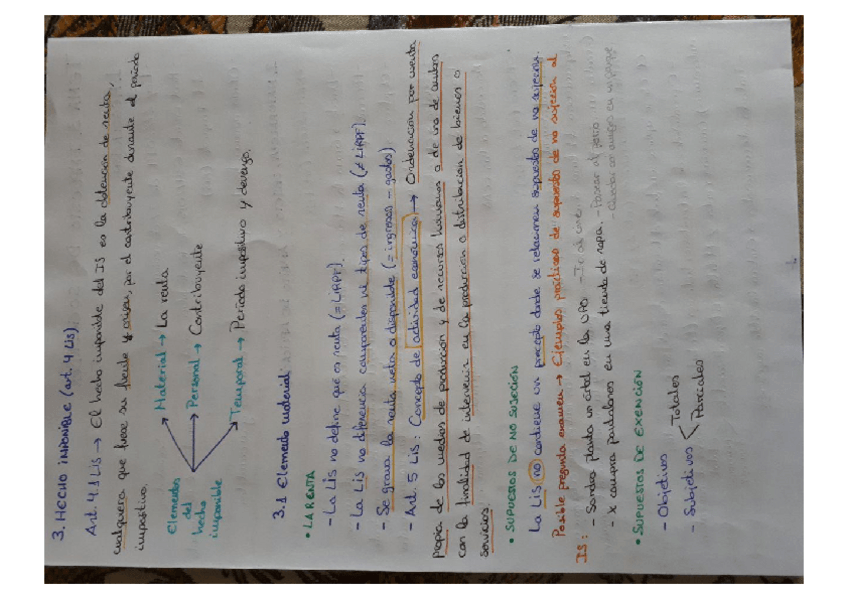 3. HECHO IMPONIBLE (art. 4 LIS).
Art. 4.1 LIS → El hecho imponible del IS es la obtención de renta,
cualquiera que fuese su fuente y origen, por el contribuyente durante el período
impositivo.
Elementos del hecho imponible
Material → La renta
Personal → Contribuyente
Temporal → Período impositivo y devengo.
3.1 Elemento material
• LA RENTA
- La LIS no define que es renta (= LIRPF).
- La LIS no diferencia componentes ni tipos de renta (≠ LIRPF).
- Se grava la renta neta o disponible (= ingresos - gastos)
- Art. 5 LIS: Concepto de actividad económica → Ordenación por cuenta
propia de los medios de producción y de recursos humanos o de uno de ambos
con la finalidad de intervenir en la producción o distribución de bienes o
servicios.
• SUPUESTOS DE NO SUJECIÓN
La LIS no contiene un precepto donde se relacionen supuestos de no sujeción.
Posible pregunta examen → Ejemplos prácticos de supuestos de no sujeción al
IS: - Sandra planta un árbol en la UPO. - Ir al cine
- X compra pantalones en una tienda de ropa. - Pasear al perro
• SUPUESTOS DE EXENCIÓN
- Objetivos
- Subjetivos
Totales
Parciales